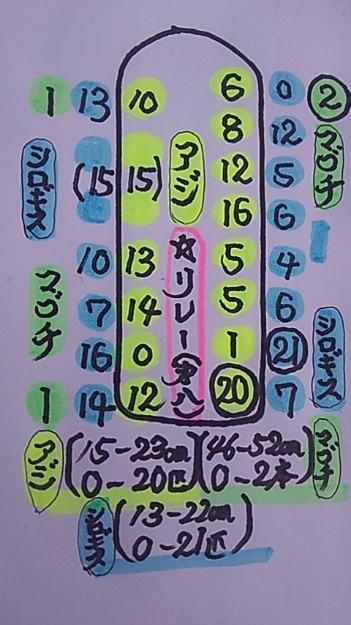 1 13 10 6 0 2
8 12
シロギス (15 15) アジ 12 5 マゴチ
16 6
10 13 5 4
マゴチ 7 14 ☆リレー(第八) 5 6 シロギス
16 0 1 21
1 14 12 20 7
アジ (15-23cm (46-52cm マゴチ
0-20匹 0-2本)
シロギス (13-22cm
0-21匹)